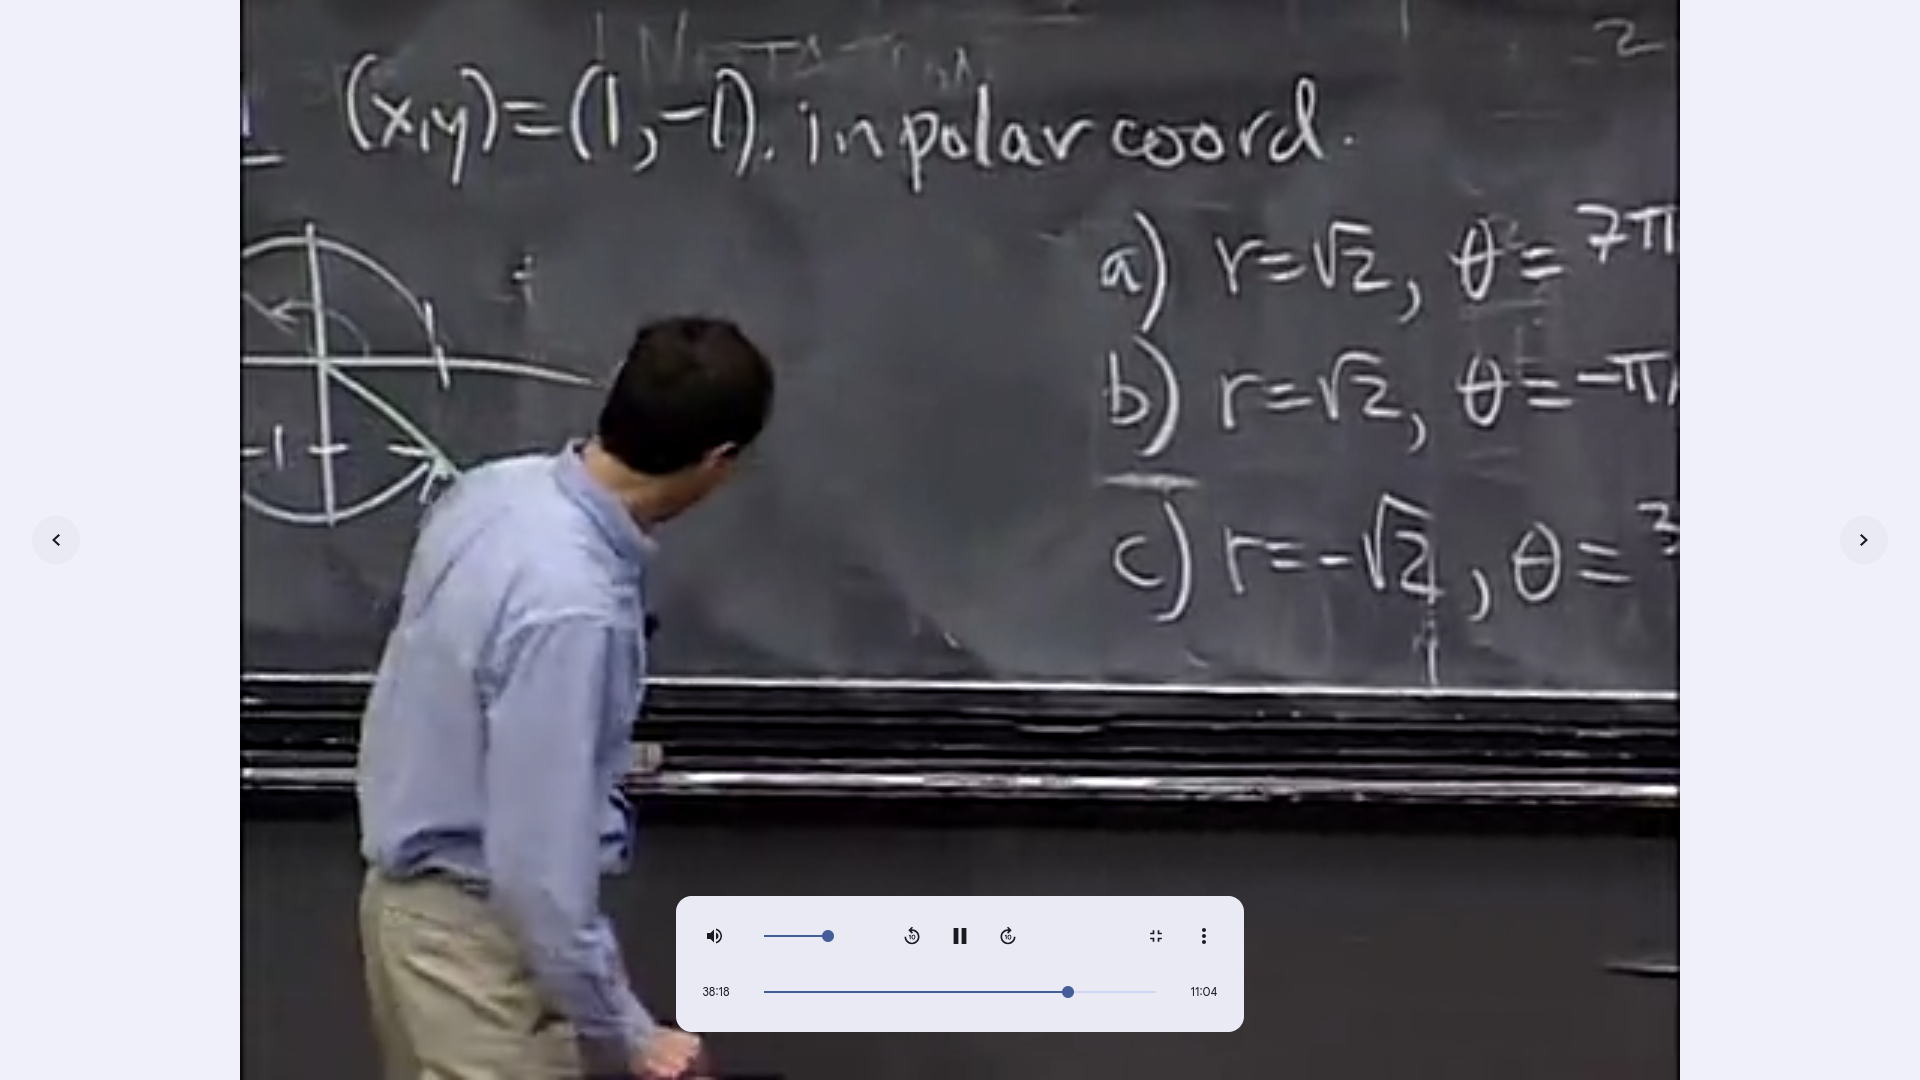 (x,y)=(1,-1). in polar coord.
2
a) r=√2, θ= 7π
b) r=√2, θ=-π/
c) r=-√2, θ= 3
-1
38:18
11:04
10
10